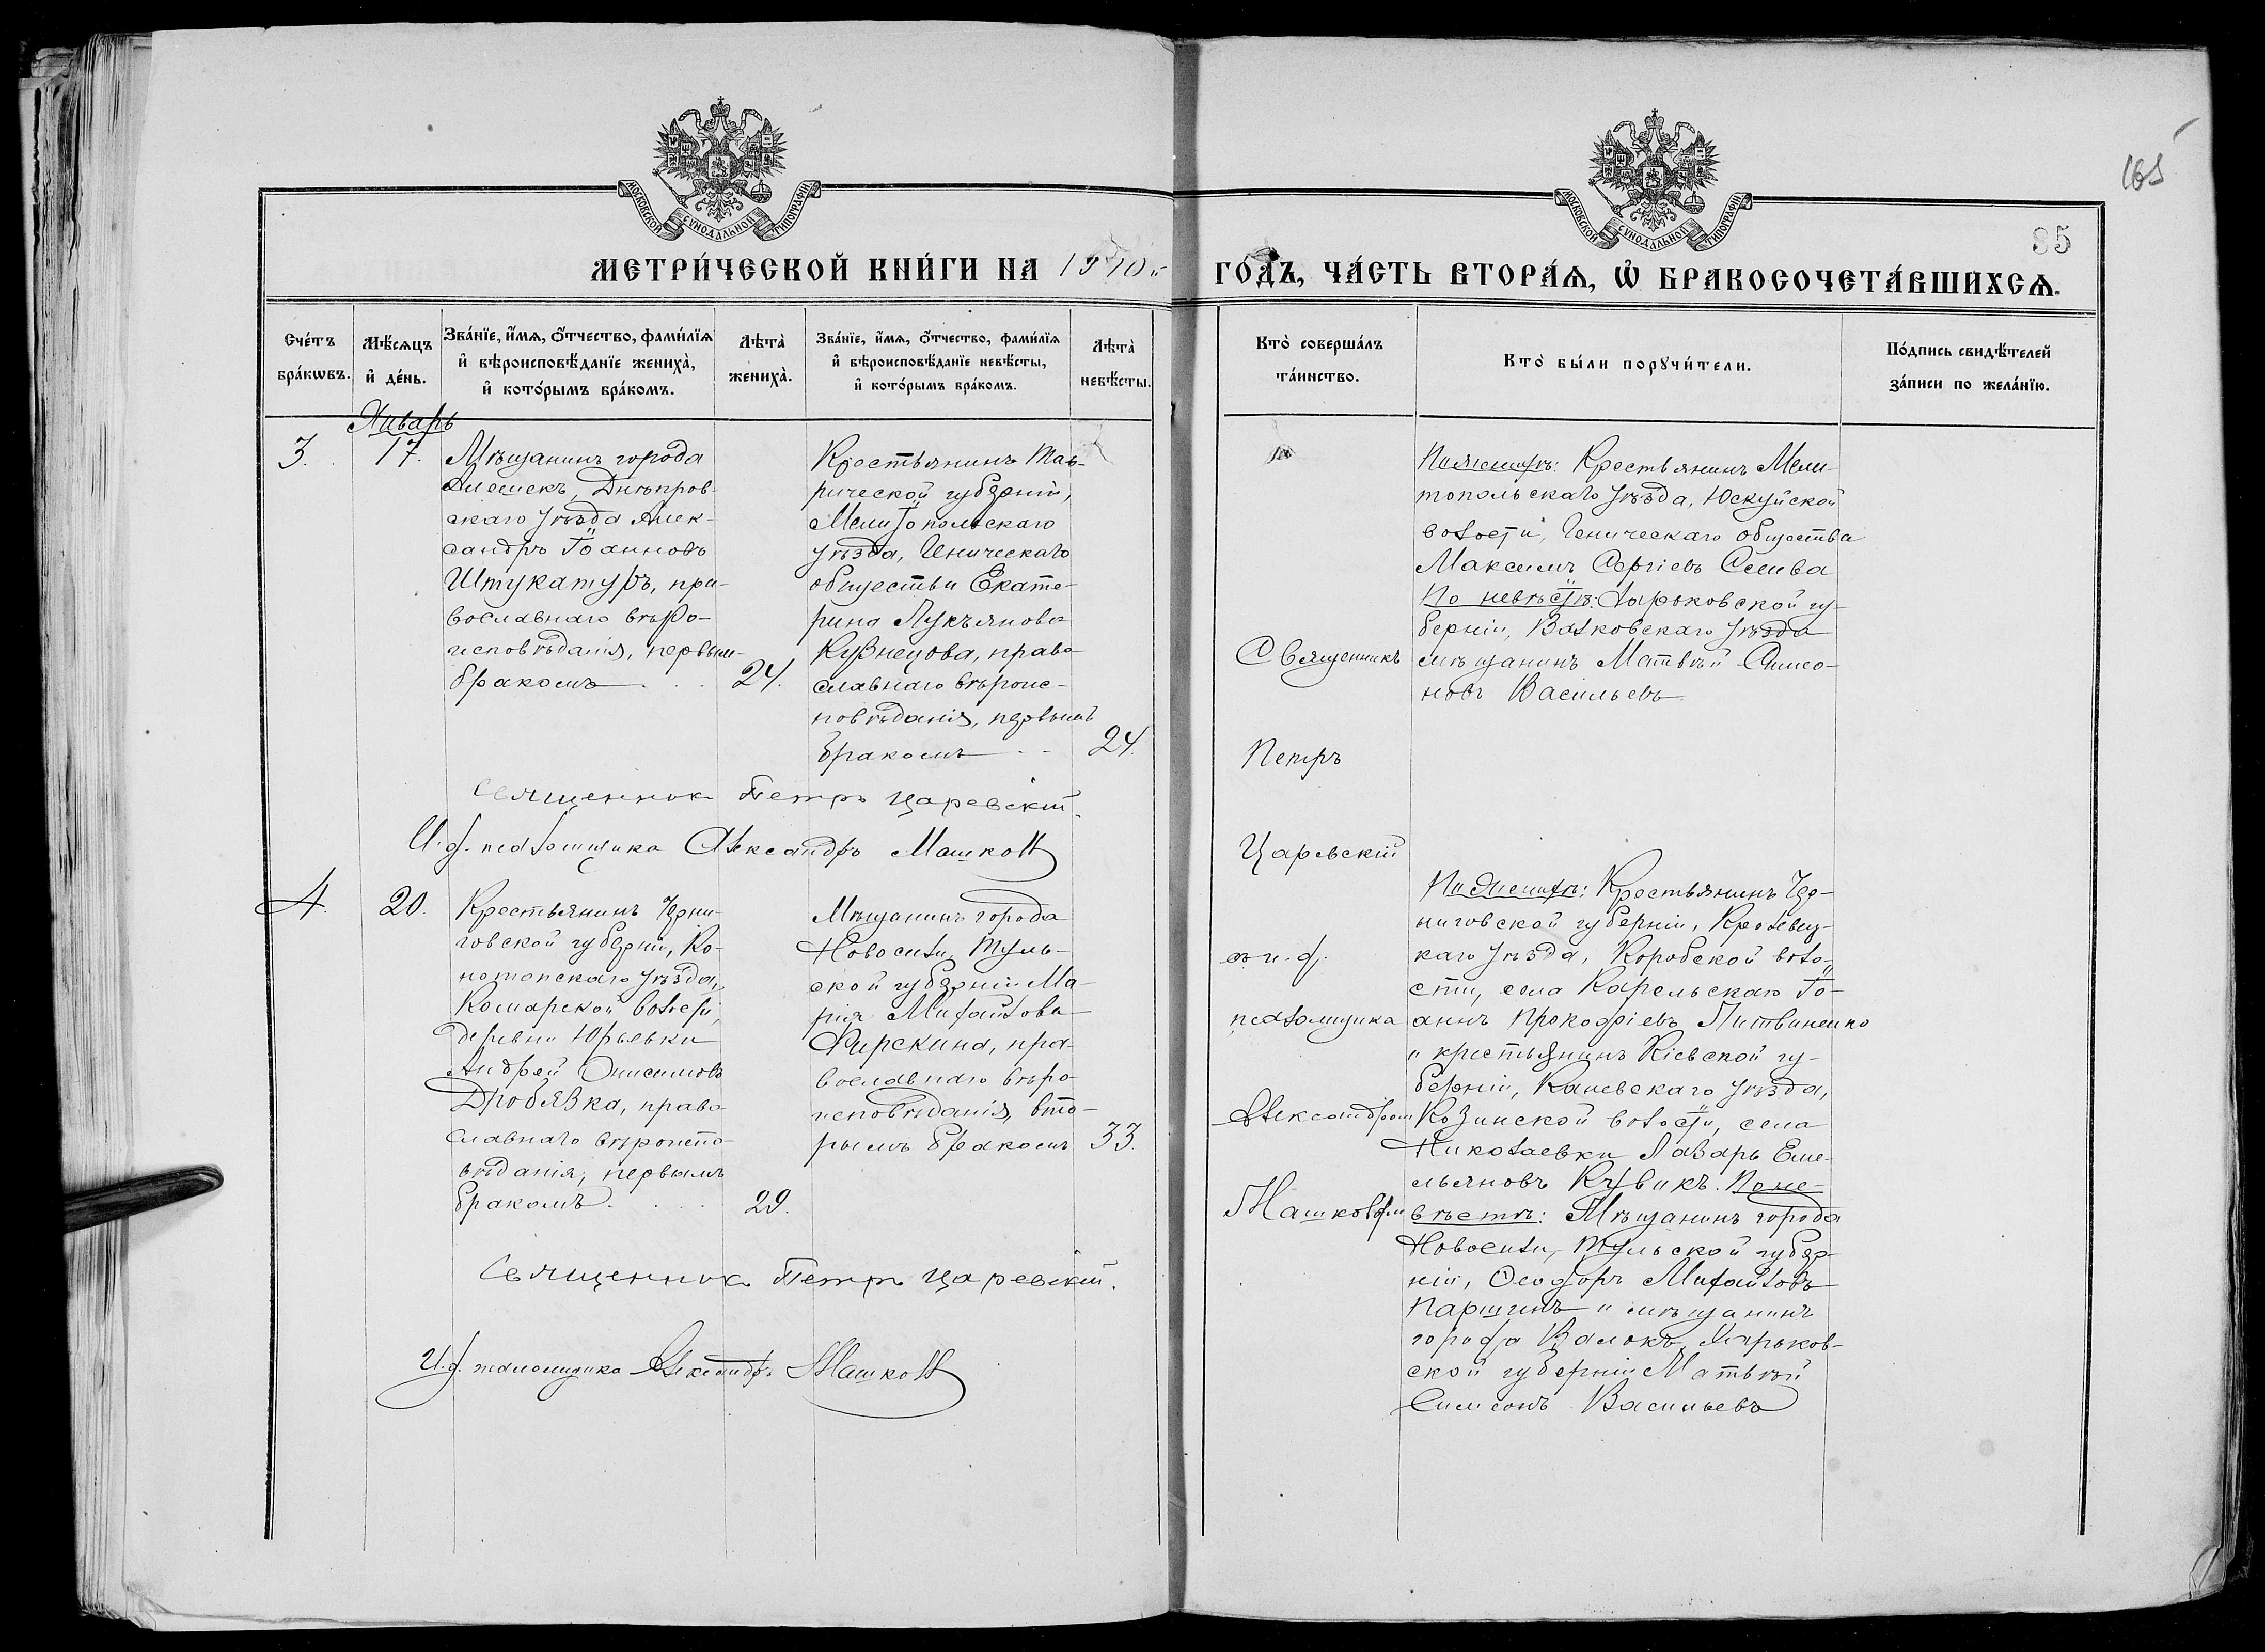 165
85
МОСКОВСКОЙ СѴНОДАЛЬНОЙ ТИПОГРАФІИ
МОСКОВСКОЙ СѴНОДАЛЬНОЙ ТИПОГРАФІИ
МЕТРИ́ЧЕСКОЙ КНИ́ГИ НА 1910 ГО́ДЪ, ЧА́СТЬ ВТОРА́Ѧ, Ѽ БРАКОСОЧЕТА́ВШИХСѦ.
Сче́тъ
бра́кѡвъ.
Мѣ́сѧцъ
и҆ де́нь.
Зва́нїе, и҆́мѧ, ѻ҆́тчество, фами́лїѧ
и҆ вѣроисповѣ́данїе жениха̀,
и҆ кото́рымъ бра́комъ.
Лѣта̀
жениха̀.
Зва́нїе, и҆́мѧ, ѻ҆́тчество, фами́лїѧ
и҆ вѣроисповѣ́данїе невѣ́сты,
и҆ кото́рымъ бра́комъ.
Лѣта̀
невѣ́сты.
Кто̀ соверша́лъ
та́инство.
Кто̀ бы́ли порꙋчи́тели.
По́дпись свидѣ́телей
за́писи по жела́нїю.
Январь
3. 17.
Мѣщанинъ города
Алешекъ, Днѣпров-
скаго уѣзда Алек-
сандръ Іоанновъ
Штукатуръ, пра-
вославнаго вѣро-
исповѣданія, первым
бракомъ . . . 24.
Крестьянинъ Тав-
рической губерніи,
Мелитопольскаго
уѣзда, Геническаго
общества Екате-
рина Лукъянова
Кузнецова, право-
славнаго вѣроис-
повѣданія, первымъ
бракомъ . . 24.
Священникъ
Петръ
Царевскій
съ и. д.
псаломщика
Александром
Машковым
По женихѣ: Крестьянинъ Мели-
топольскаго уѣзда, Юскуйской
волости, Геническаго общества
Максимъ Сергіевъ Селива
По невѣстѣ: Харьковской гу-
берніи, Валковскаго уѣзда
мѣщанинъ Матвѣй Симео-
новъ Васильевъ
Священникъ Петръ Царевскій.
И. д. псаломщика Александръ Машковъ
4. 20.
Крестьянинъ Черни-
говской губерніи, Ко-
нотопскаго уѣзда,
волости,
деревни Юрьевки
Андрей Онисимовъ
Дробязка, право-
славнаго вѣроиспо-
вѣданія, первымъ
бракомъ. . . . 29.
Мѣщанинъ города
Новосили, Туль-
ской губерніи Ма-
рія Михайлова
православнаго вѣро-
исповѣданія, вто-
рымъ бракомъ 33.
По женихѣ: Крестьянинъ Чер-
ниговской губерніи, Кролевец-
каго уѣзда, Коробской воло-
сти, села Карельскаго Іо-
аннъ Прокофіевъ Литвиненко
и крестьянинъ Кіевской гу-
берніи, Каневскаго уѣзда,
Козинской волости, села
Николаевки Лазарь Еме-
льяновъ Кувикъ. По не-
вѣстѣ: Мѣщанинъ города
Новосили, Тульской губер-
ніи, Ѳеодоръ Михайловъ
Паршинъ и мѣщанинъ
города Валокъ, Харьков-
ской губерніи Матвѣй
Симеонъ Васильевъ
Священникъ Петръ Царевскій.
И. д. псаломщика Александръ Машковъ